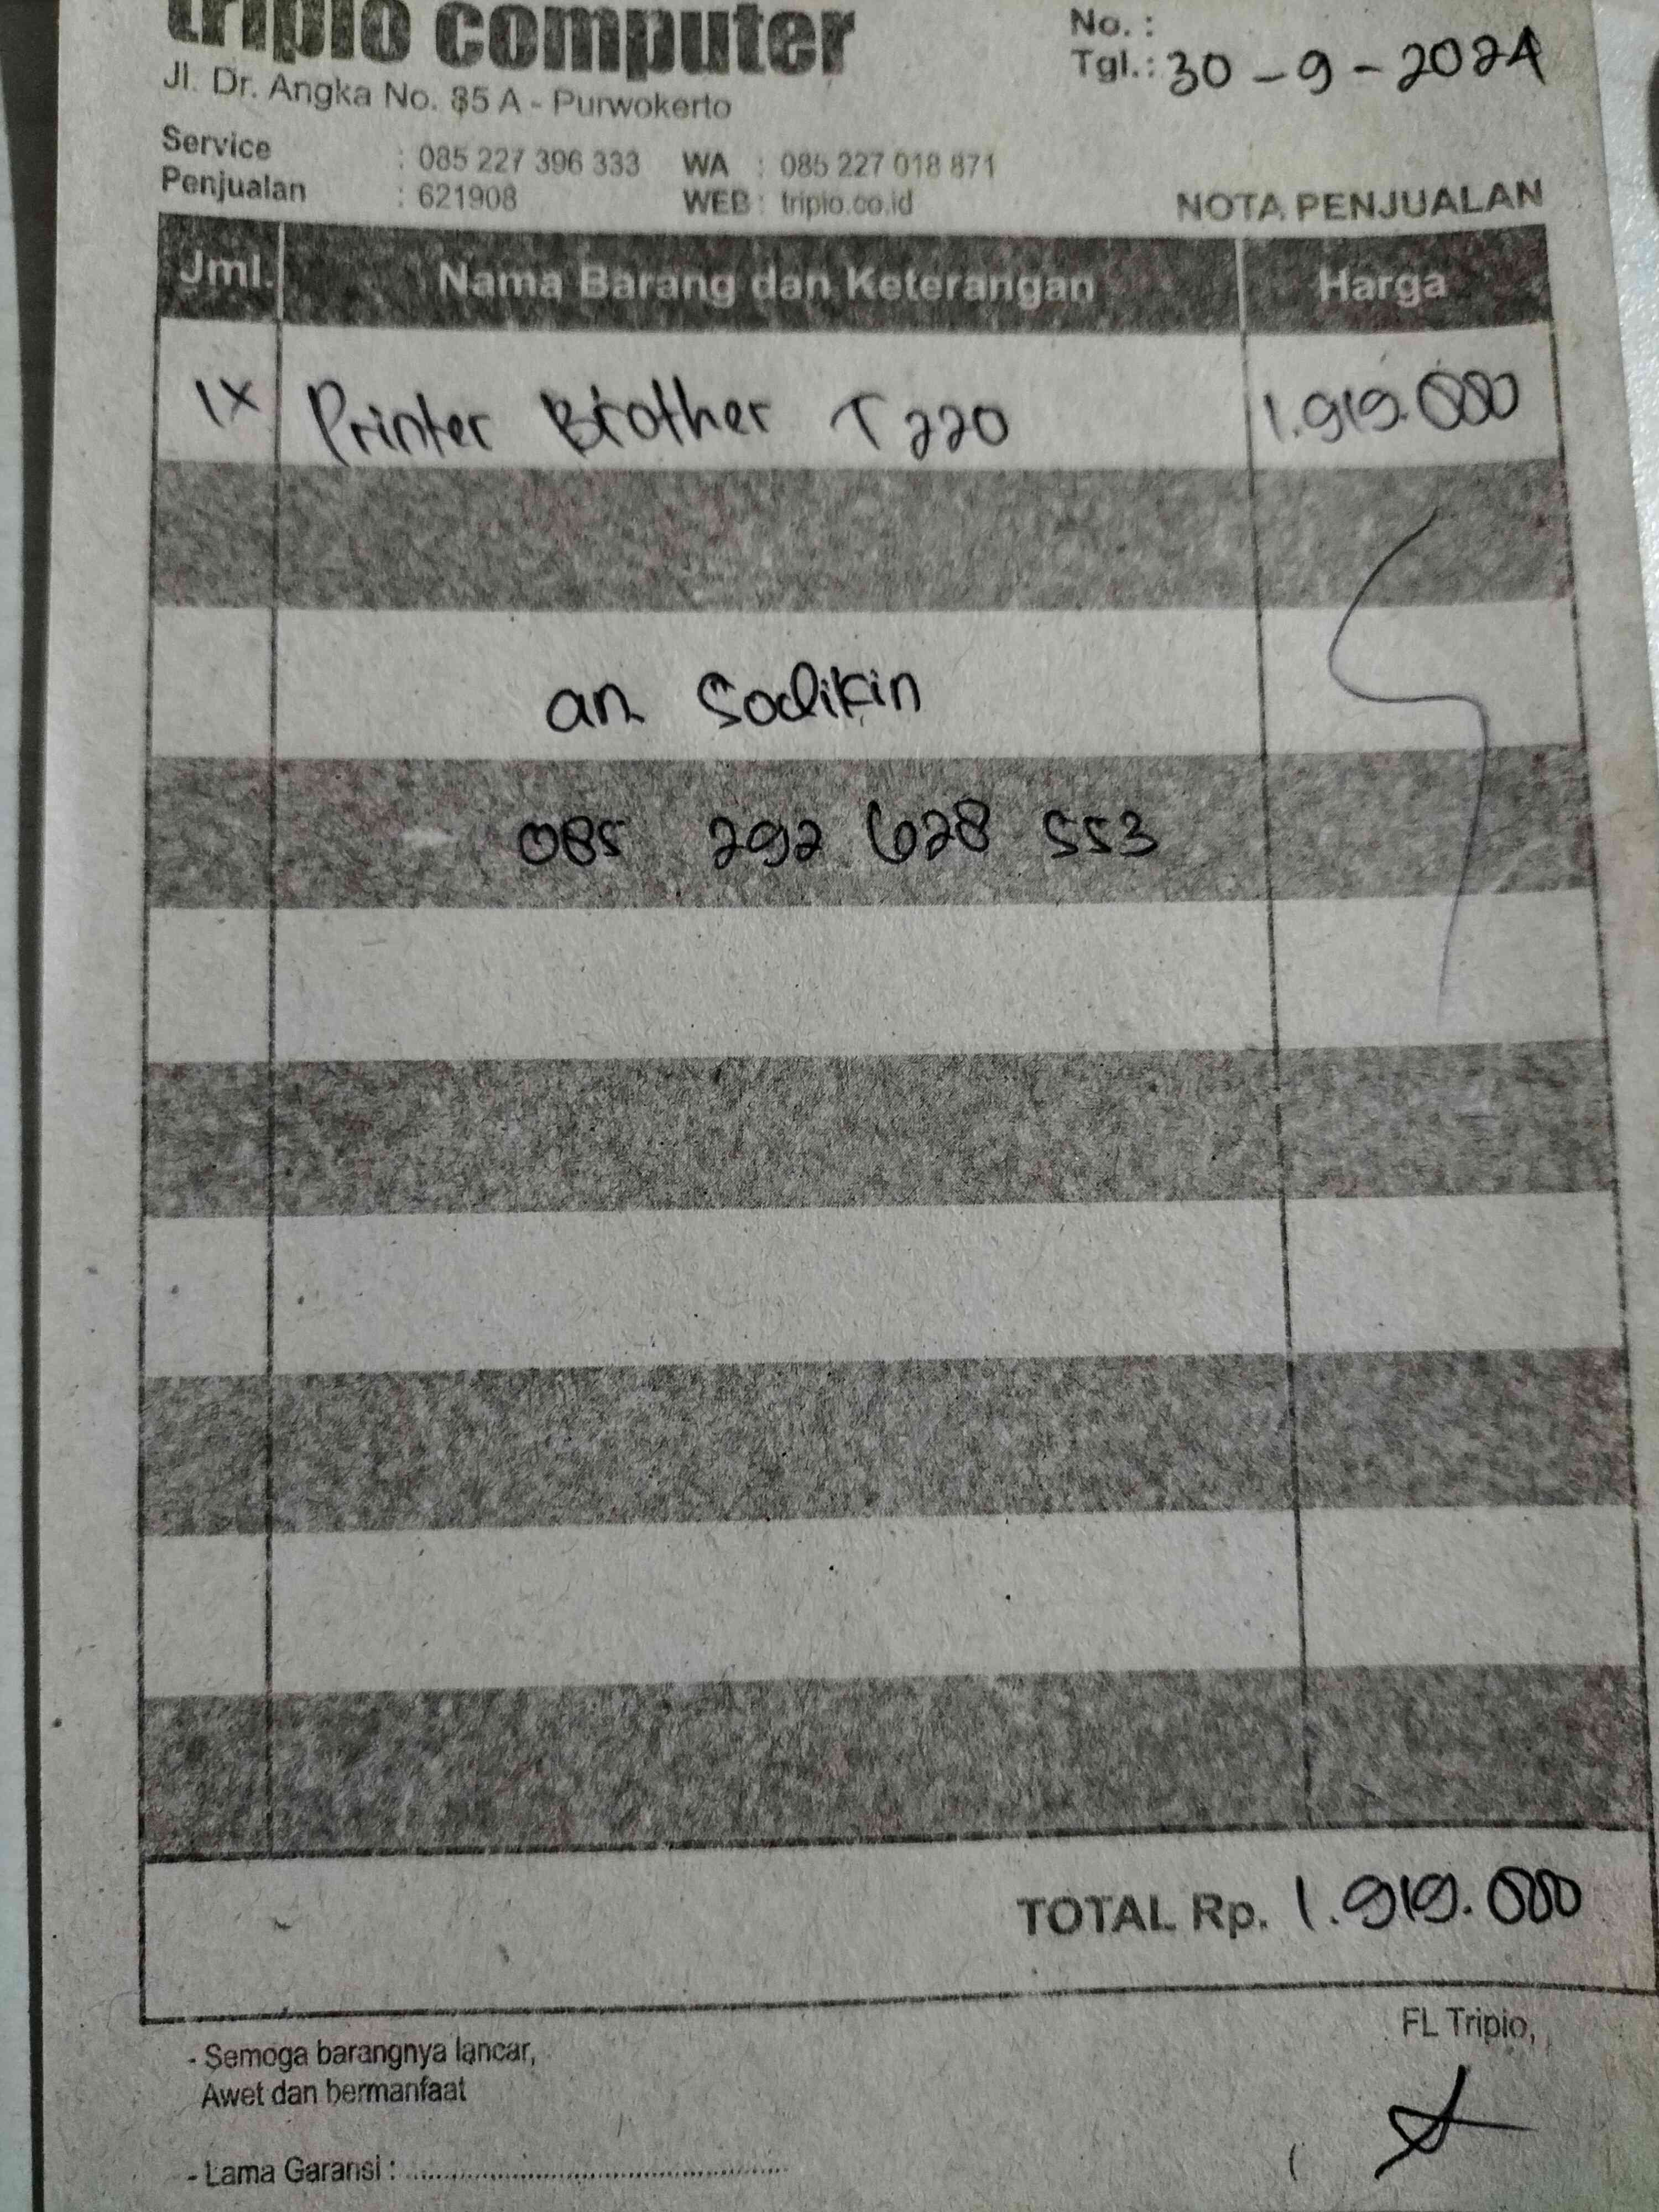 triplo computer
No. :
Tgl.: 30 - 9 - 2024
Jl. Dr. Angka No. 85 A - Purwokerto
Service : 085 227 396 333 WA : 085 227 018 871
Penjualan : 621908 WEB : triplo.co.id
NOTA PENJUALAN
Jml. Nama Barang dan Keterangan Harga
1x Printer Brother T220 1.919.000
an Sodikin
085 292 628 553
TOTAL Rp. 1.919.000
FL Triplo,
- Semoga barangnya lancar,
Awet dan bermanfaat
- Lama Garansi : ........................................